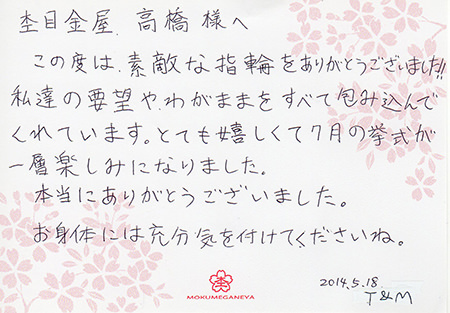 杢目金屋 高橋様へ
この度は、素敵な指輪をありがとうございました!!
私達の要望や、わがままをすべて包み込んで
くれています。とても嬉しくて7月の挙式が
一層楽しみになりました。
本当にありがとうございました。
お身体には充分気を付けてくださいね。
MOKUMEGANEYA
2014.5.18
T&M